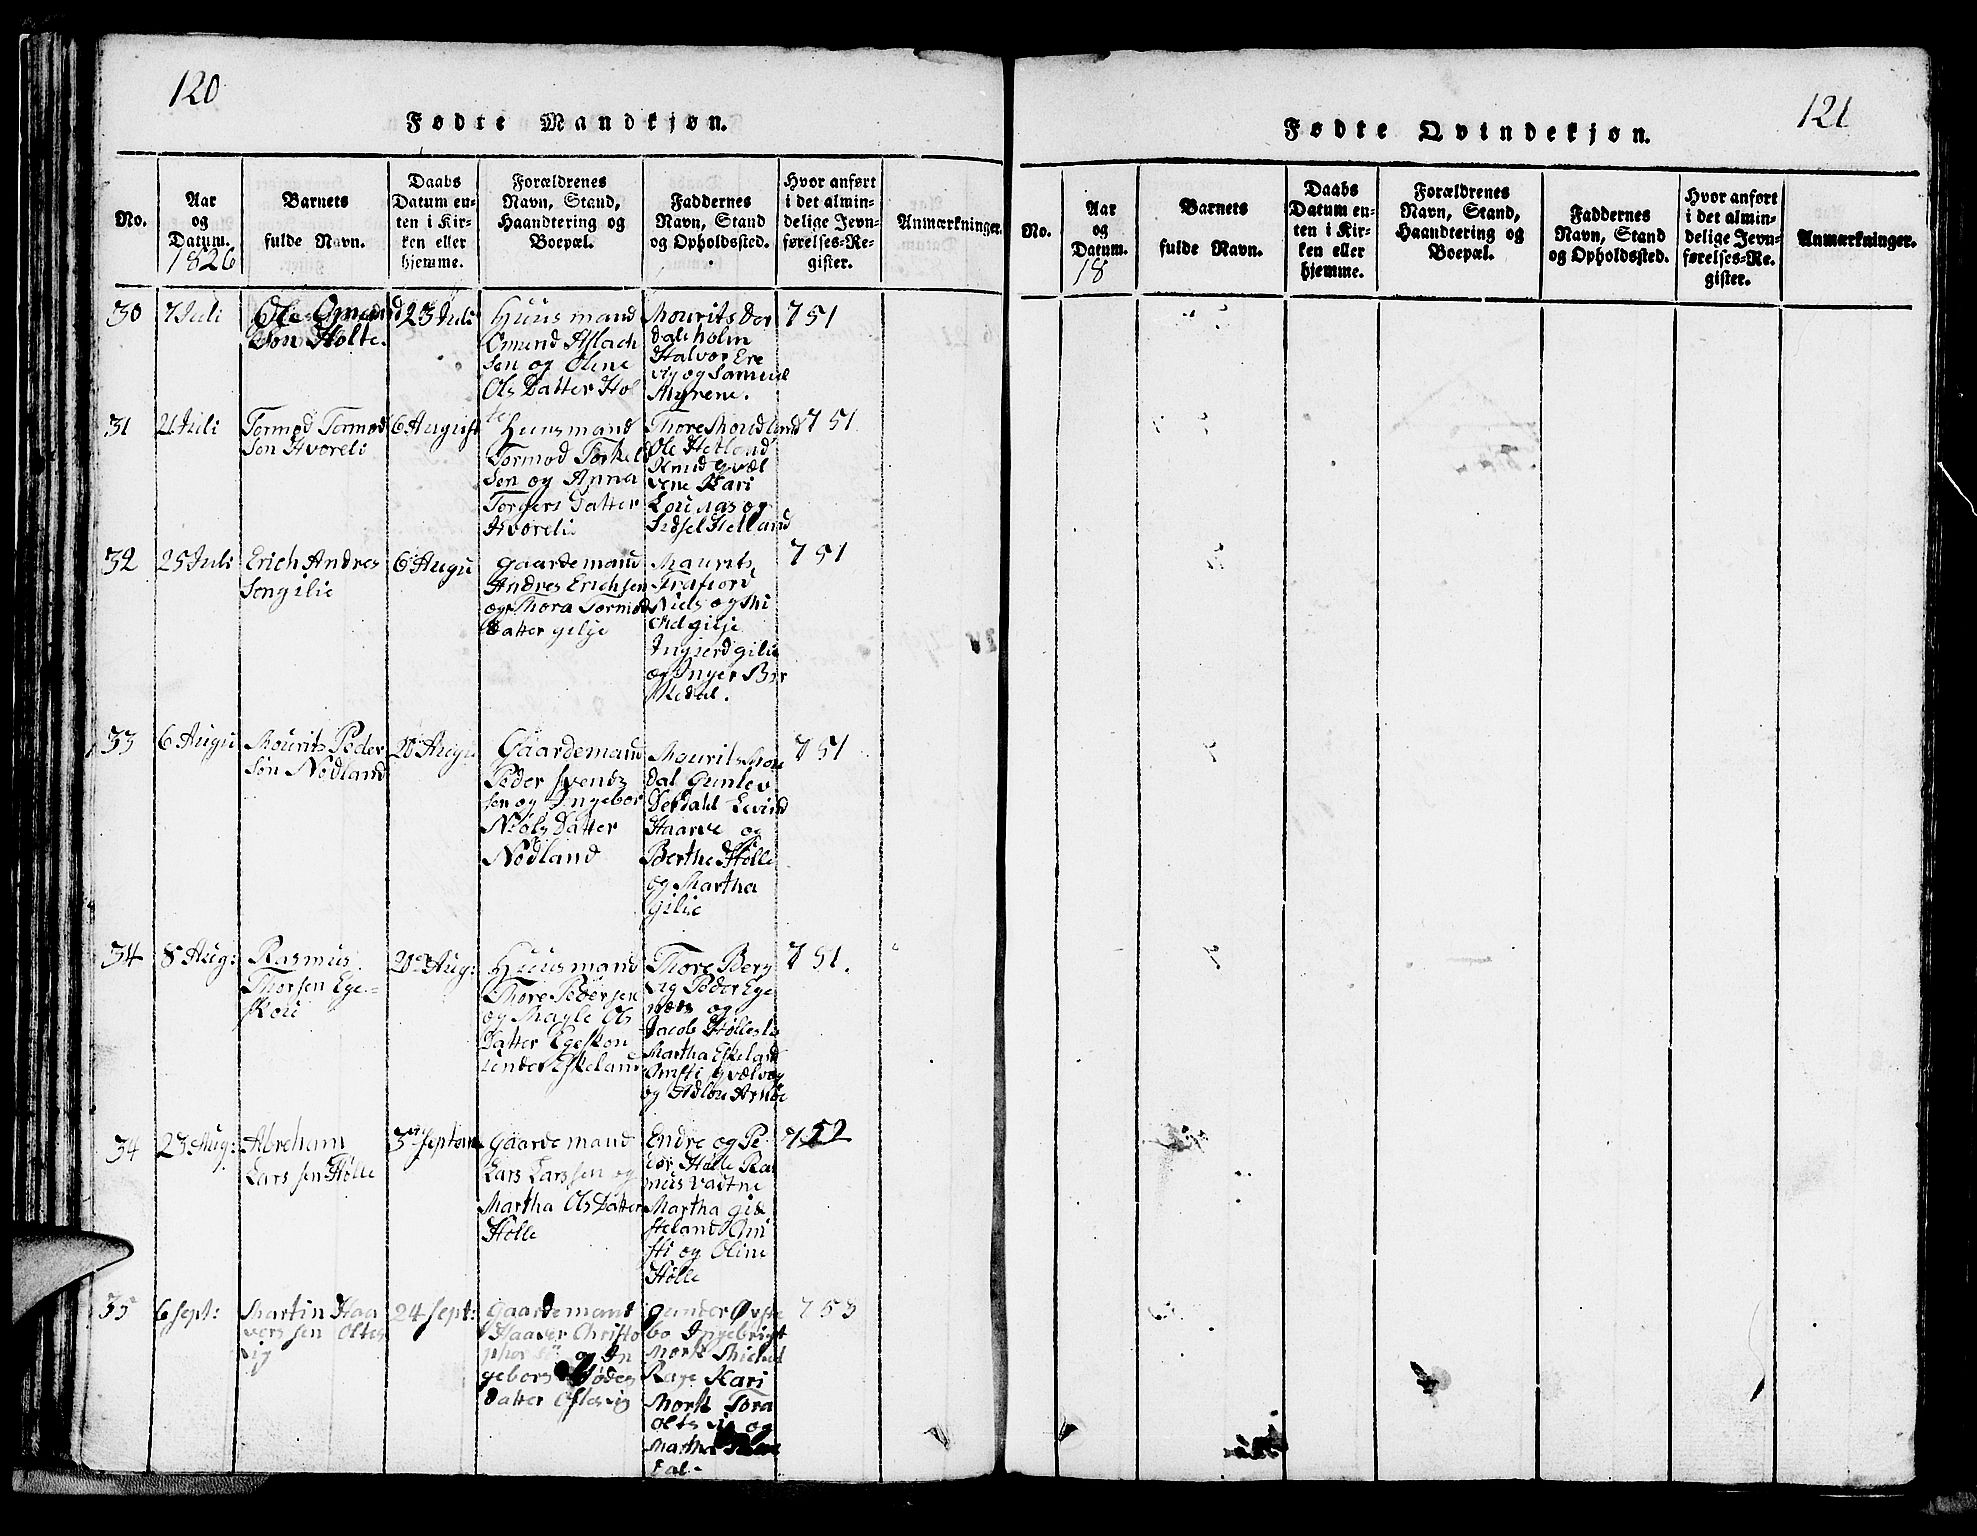 120
Fødte Mandkjøn.
No.
Aar
og
Datum.
1826
Barnets
fulde Navn.
Daabs
Datum en-
ten i Kir-
ken eller
hjemme.
Forældrenes
Navn, Stand,
Haandtering og
Boepæl.
Faddernes
Navn, Stand
og Opholdssted.
Hvor anført
i det almin-
delige Jevn-
førelses-Re-
gister.
Anmærkninger.
30
7 Juli
Ole Omund
Søn Holte.
23 Juli
Huusmand
Omund Aslach
Søn og Oline
Ols Datter Hol
te
Mourits Der
dal holm
Halvor Ere
vig og Samuel
Myrene.
751
31
21 Juli
Tormod Tormod
Søn Hvoreli
6 August
Huusmand
Tormod Torkels
Søn og Anna
Torgers Datter
Hvoreli
Thore Moudland
Ole Hetland
Knud qvæl
vene Kari
Louraas og
Sidsel Helland
751
32
25 Juli
Erich Andres
Søn gilie
6 Augu
gaardemand
Andres Erichsen
og Thora Tormod
Datter gilje
Maurits
Frafiord
Niels og Mi
chel gilje
Ingierd gilie
og Inger Bir
kedal.
751
33
6 Augu
Mourits Peder
søn Nødland
20 Augu
Gaardemand
Peder Svends
søn og Ingebor
Niels Datter
Nødland
Mourits Mou
dal Gunlev
Derdahl Eevind
Haarve og
Berthe Hølle
og Martha
Gilie
751
34
8 Aug:
Rasmus
Thorsen Ege-
skou
20 Aug:
Huusmand
Thore Pedersen
og Magle Ols
Datter Egeskou
under Eskeland
Thore Berg
vig Peder Ege
næs og
Jacob Hølleslie
Martha Eskeland
751.
34
23 Aug:
Abraham
Larssen Hølle
3 Septem
Gaardemand
Lars Larssen og
Martha Ols Datter
Hølle
Endre og Pe
der Hølle Ras
mus Vadtne
Martha gil
steland Kri
sti og Oline
Hølle
752
35
6 Sept:
Martin Haa
verssen Oltes
vig
24 Sept:
Gaardemand
Haaver Christo
phersø og In
gebor
Datter Oltesvig
gunder Øvste
bø Ingebrigt
Mørk Michel
Rage Kari
Mørk Tora
Oltsvig og
Martha
dal.
753
121
Fødte Qvindekjøn.
No.
Aar
og
Datum.
18
Barnets
fulde Navn.
Daabs
Datum en-
ten i Kir-
ken eller
hjemme.
Forældrenes
Navn, Stand,
Haandtering og
Boepæl.
Faddernes
Navn, Stand
og Opholdssted.
Hvor anført
i det almin-
delige Jevn-
førelses-Re-
gister.
Anmærkninger.